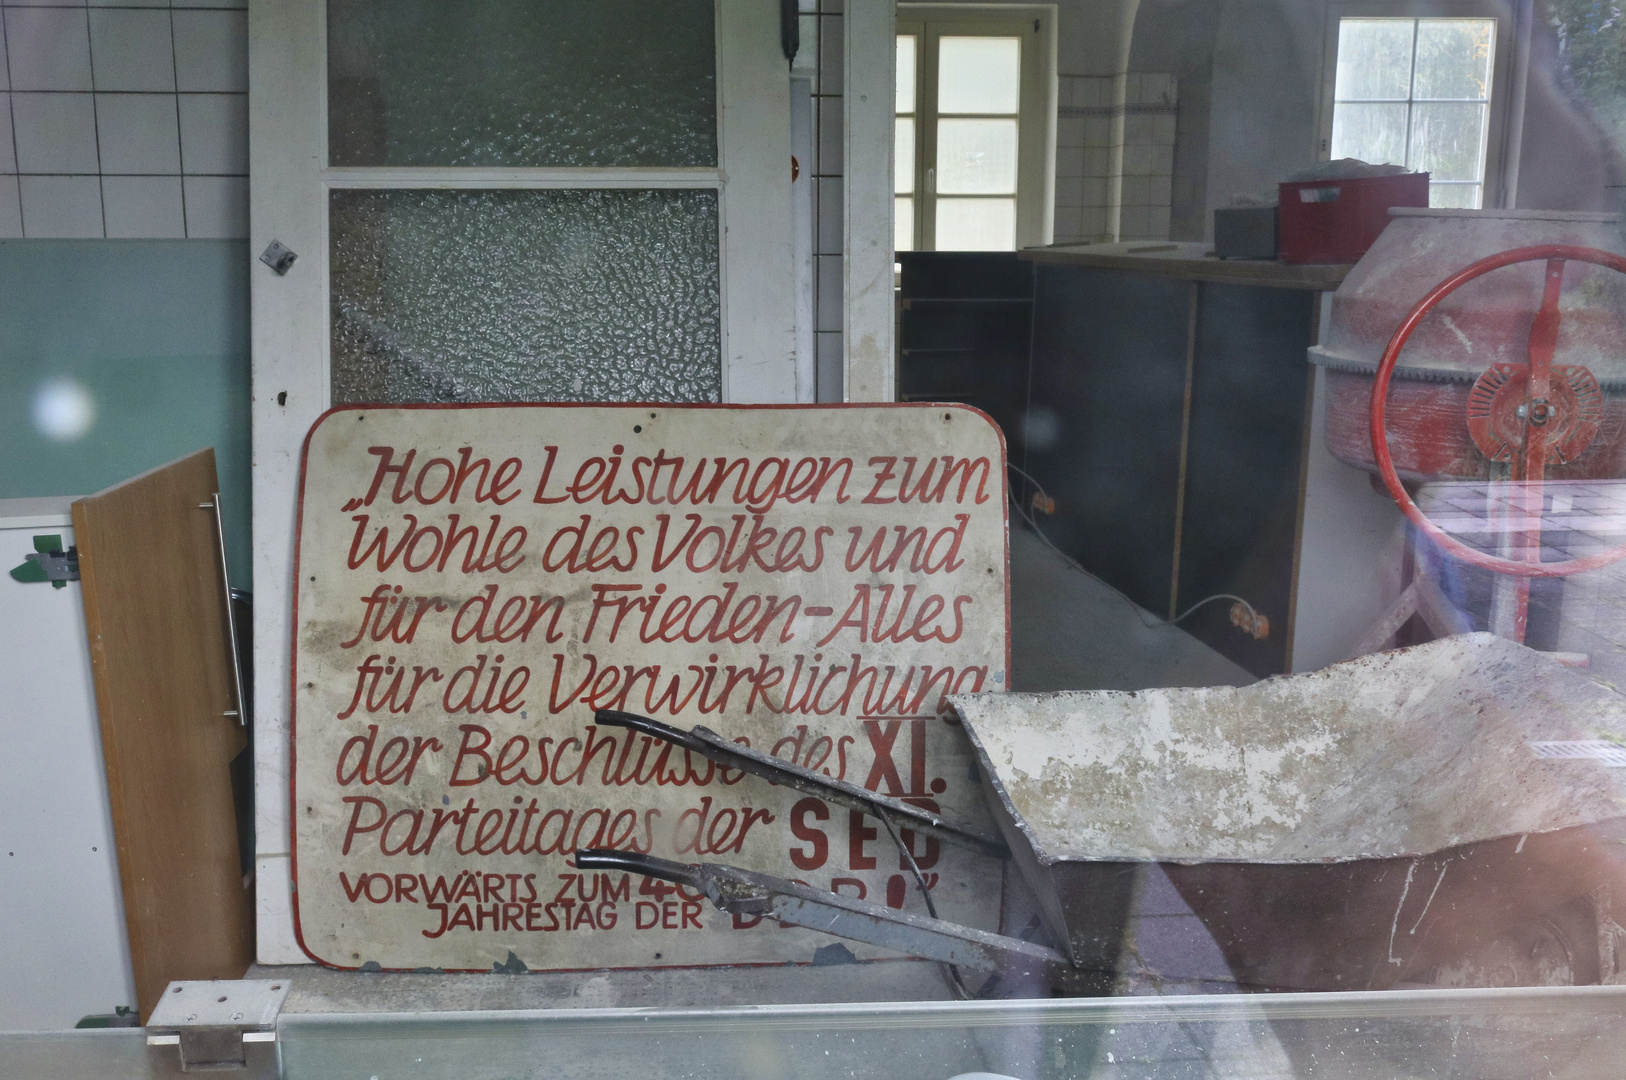 „Hohe Leistungen zum
Wohle des Volkes und
für den Frieden-Alles
für die Verwirklichung
der Beschlüsse des XI.
Parteitages der SED
VORWÄRTS ZUM 40
JAHRESTAG DER DDR!"